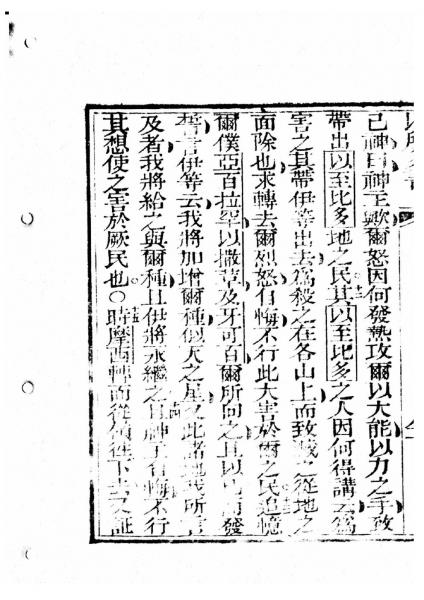 己神曰神主歟爾怒因何發熱攻爾以大能以力之手致
帶出以至比多地之民其以至比多之人因何得講云爲
害之其帶伊等出去爲殺之在各山上而致滅之從地之
面除也求轉去爾烈怒有悔不行此大害於爾之民追憶
爾僕亞百拉罕以撒革及牙可百爾所向之且以己而發
誓言伊等云我將加增爾種似天之星又此諸地我所言
及者我將給之與爾種且伊將永繼之且神主有悔不行
其想使之害於厥民也○時摩西轉而從嶺往下去又証